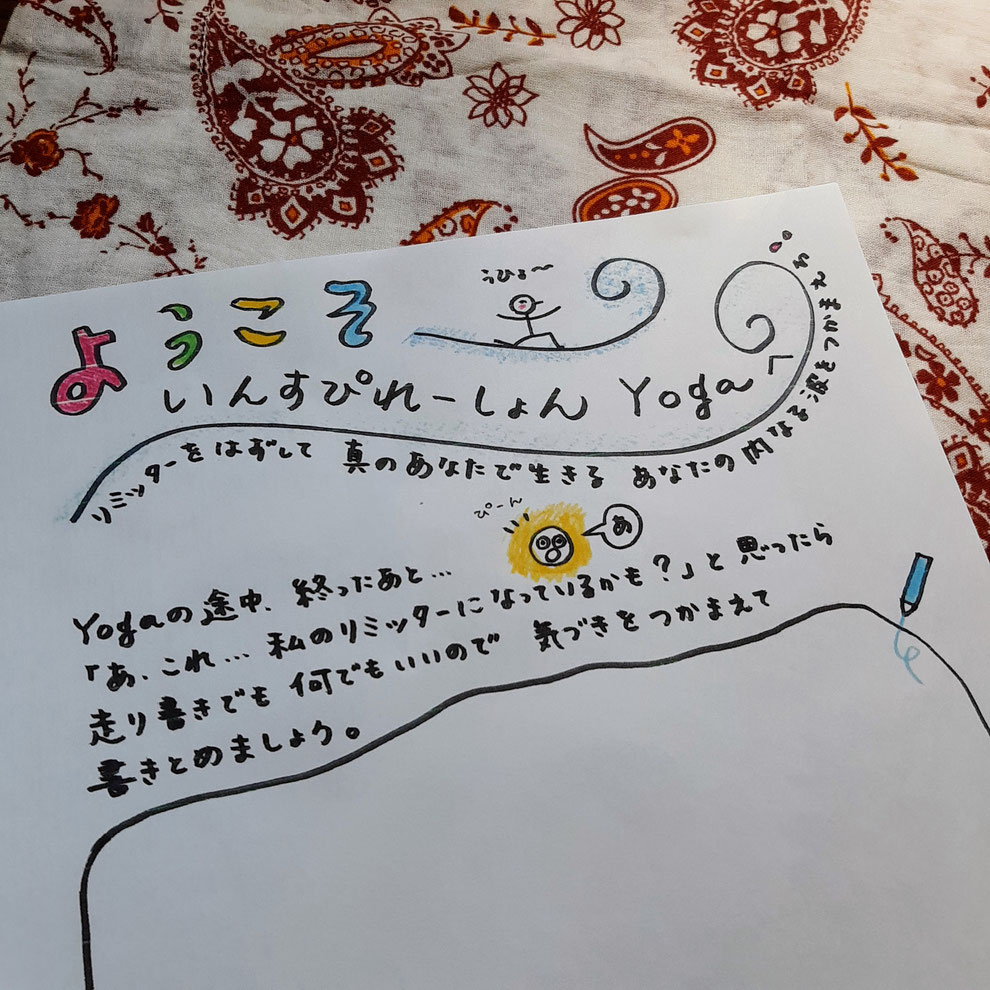 ようこそ
うひょ〜
いんすぴれーしょん Yogaへ
リミッターをはずして 真のあなたで生きる あなたの内なる波をつかまえろ
ぴーん
あ
Yogaの途中、終ったあと…
「あ、これ… 私のリミッターになっているかも?」と思ったら
走り書きでも 何でもいいので 気づきをつかまえて
書きとめましょう。